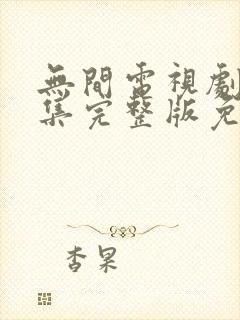 無間電視劇
集完整版免
杏杲